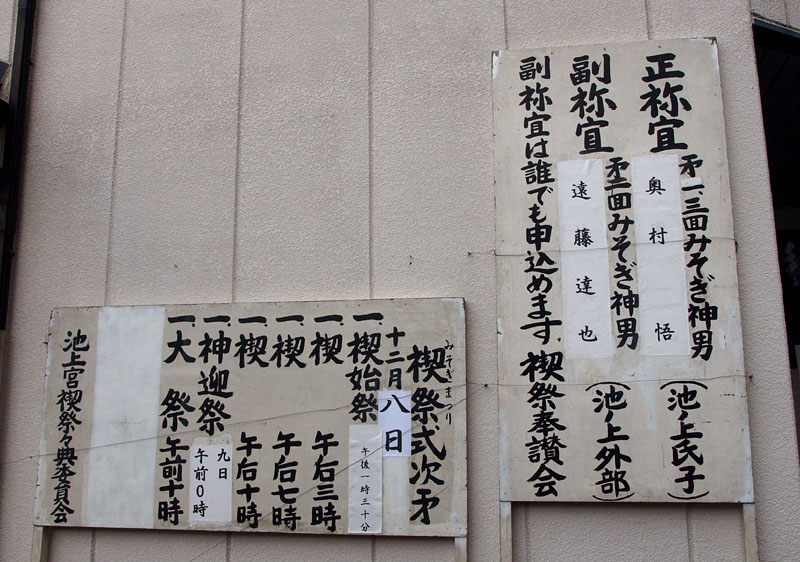 正祢宜
才一、三回みそぎ神男
奥村 悟
(池ノ上氏子)
副祢宜
才二回みそぎ神男
遠藤達也
(池ノ上外部)
副祢宜は誰でも申込めます。禊祭奉賛会
禊祭式次才
みそぎまつり
十二月八日
一、禊始祭
午後一時三十分
一、禊 午后三時
一、禊 午后七時
一、禊 午后十時
一、神迎祭
九日
午前0時
一、大祭 午前十時
池上宮禊祭々典委員会